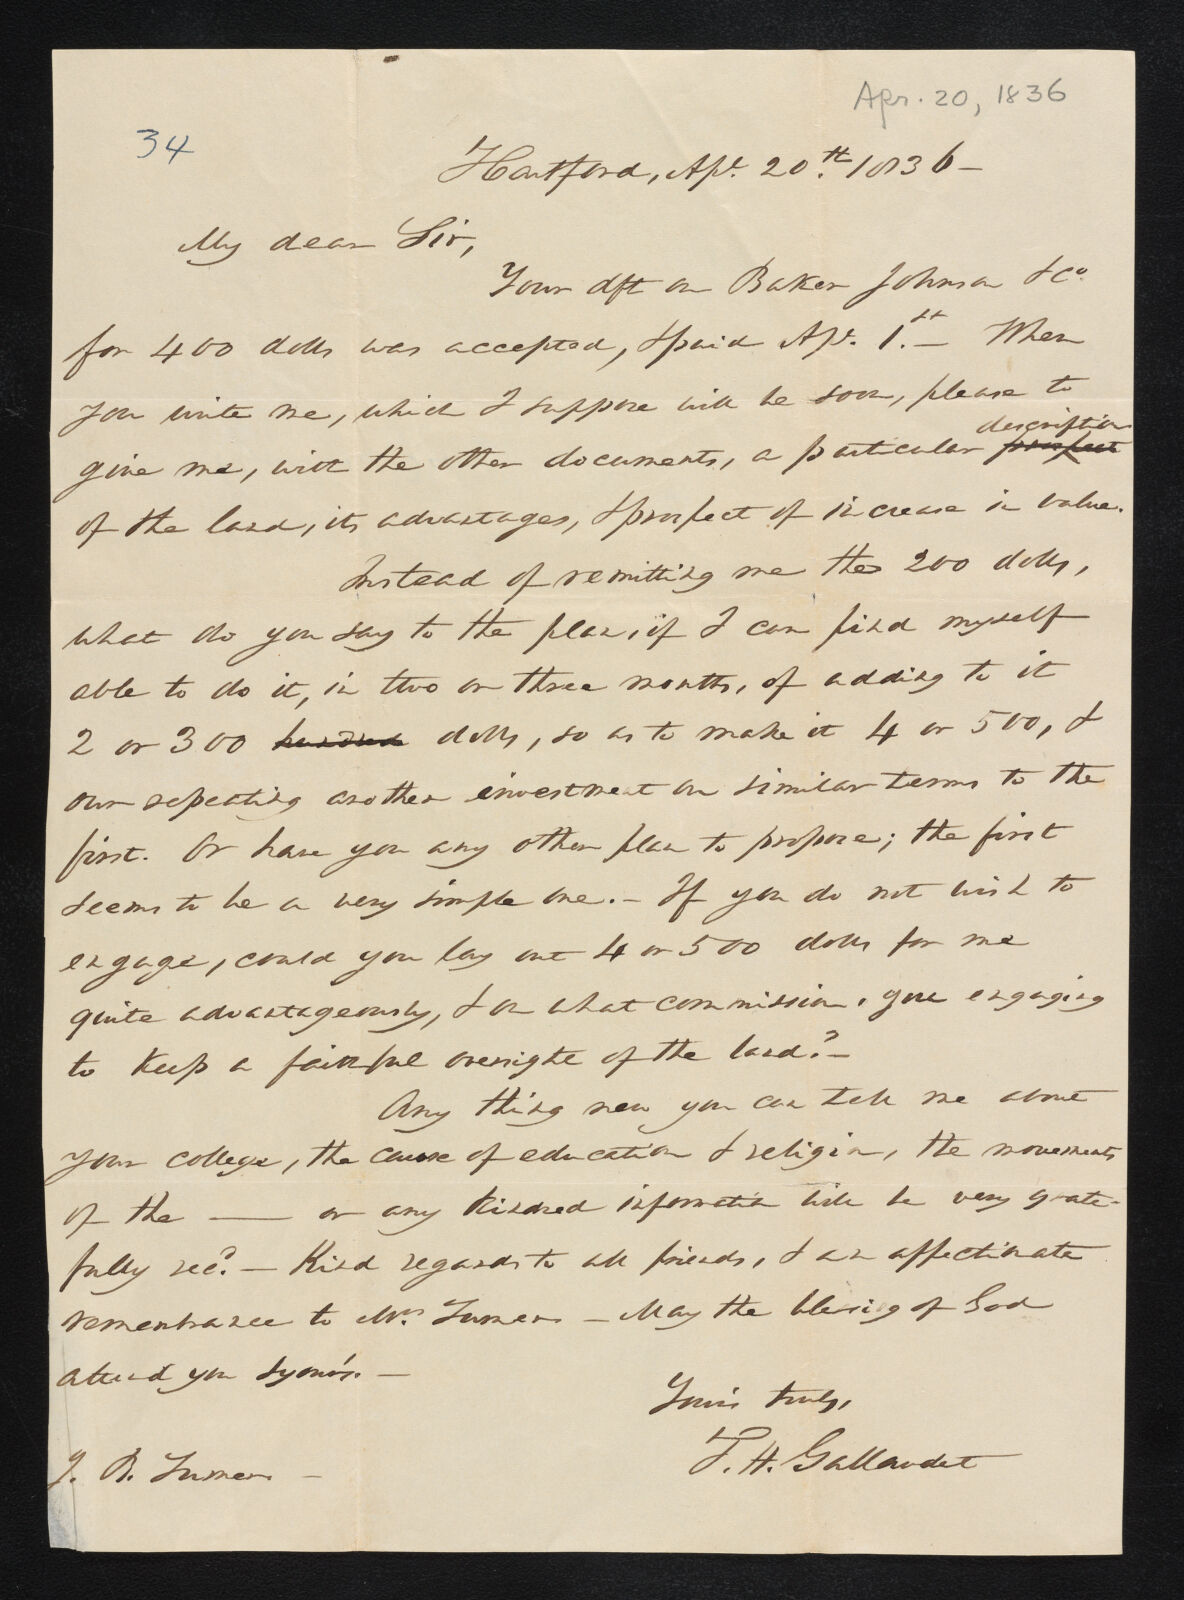 Apr. 20, 1836
34
Hartford, Apl. 20th. 1836 –
My dear Sir,
Your dft on Baker Johnson & Co
for 400 dolls was accepted, & paid Apl. 1.st – When
you write me, which I suppose will be soon, please to
give me, with the other documents, a particular description
of the land, its advantages, & prospect of increase in value.
Instead of remitting me the 200 dolls,
what do you say to the plan, if I can find myself
able to do it, in two or three months, of adding to it
2 or 300 hundred dolls, so as to make it 4 or 500, &
our repeating another investment on similar terms to the
first. Or have you any other plan to propose; the first
seems to be a very simple one. – If you do not wish to
engage, could you lay out 4 or 500 dolls for me
quite advantageously, & on what commission, you engaging
to keep a faithful oversight of the land? –
Any thing new you can tell me about
your college, the cause of education & religion, the movements
of the —— or any kindred information will be very grate-
fully recd. – Kind regards to all friends, & an affectionate
remembrance to Mrs. Turner – May the blessing of God
attend you & yours. –
Yours truly,
T. H. Gallaudet
J. B. Turner –